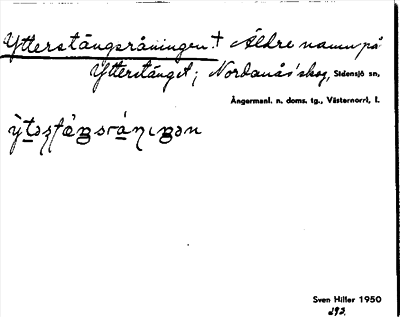 Ytterstängsråningen. + Äldre namn på
Ytterstänget; Nordanås' skog, Sidensjö sn,
Ångermanl. n. doms. tg., Västernorrl. l.
Sven Hiller 1950
292.